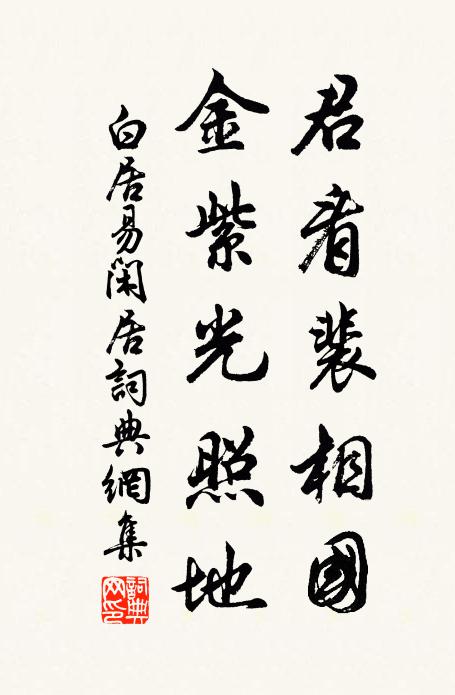 君看裴相國
金紫光照地
白居易閑居詞典網集
詞典网印